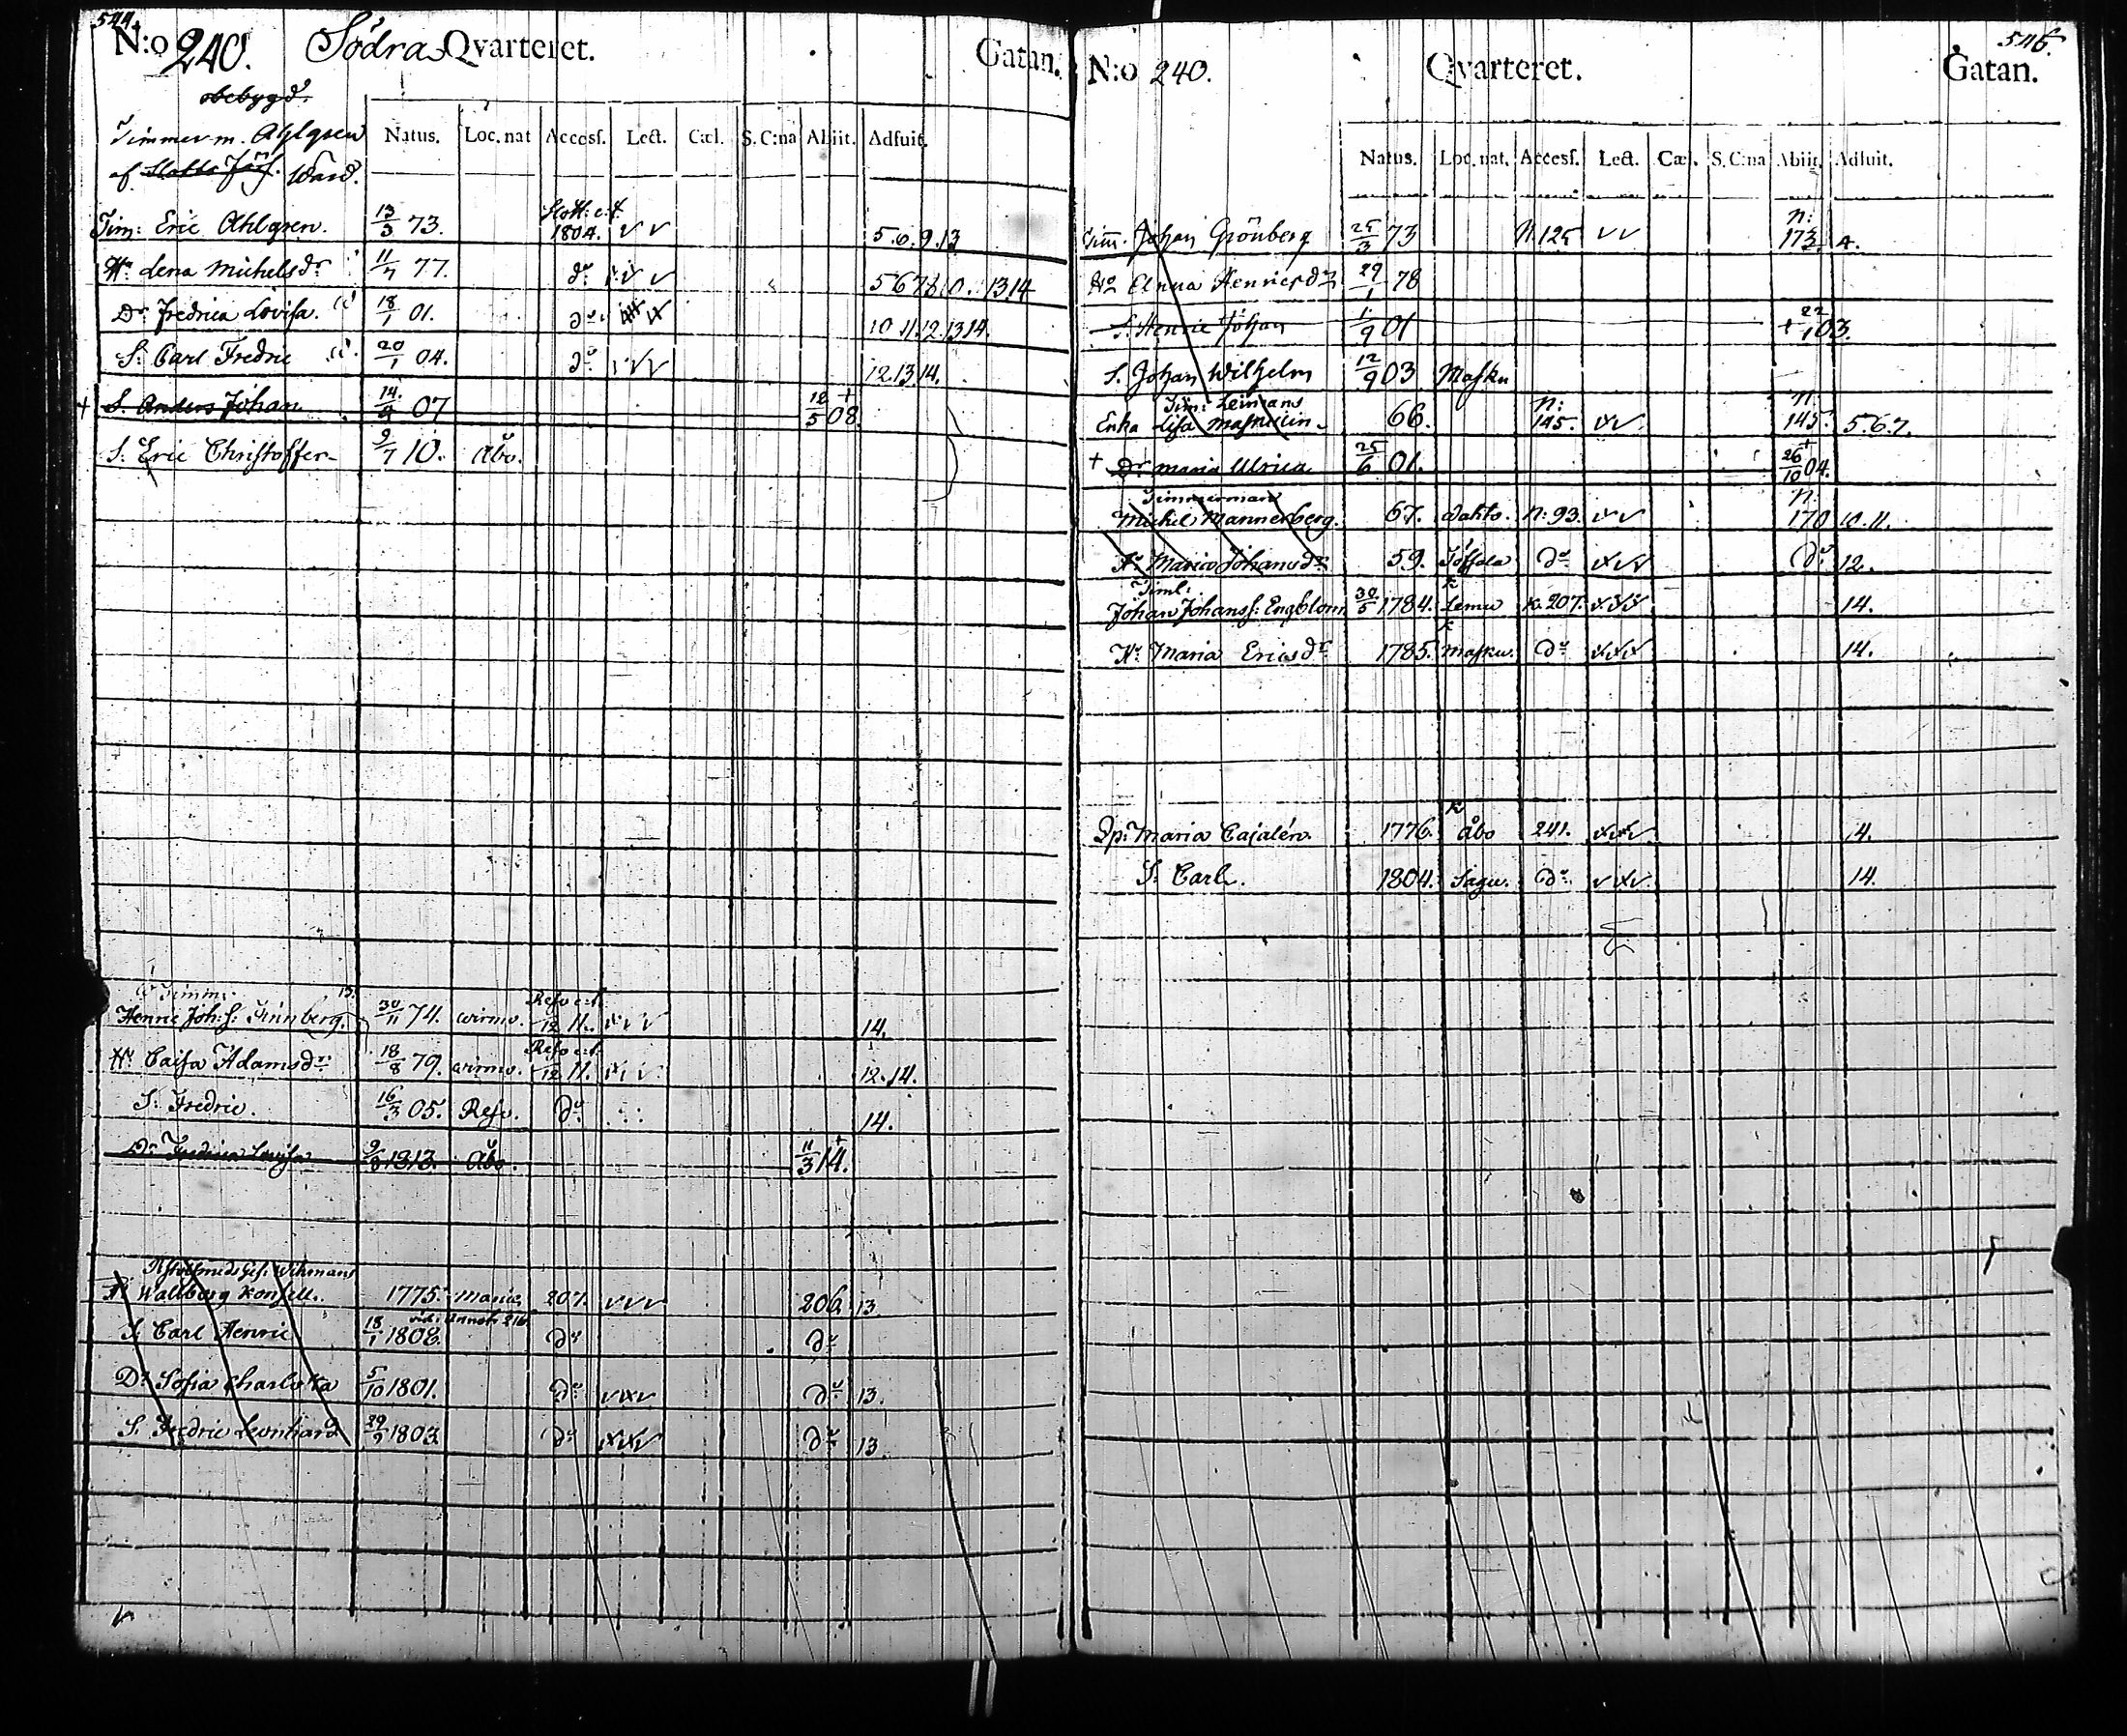 544.
N:o 240. Södra Qvarteret. Gatan.
obebygd.
Timmerm. Ahlgren
af Slotts Förs. Ward.
Natus. Loc. nat Access. Lect. Cæl. S. C:na Abiit. Adfuit.
Tim: Eric Ahlgren. 13/3 73. Slott: c:t. 1804. 5.6.9.13
Hu Lena Michelsdr 11/7 77. do 5678.10. 1314
Dr Fredrica Lovisa. 18/1 01. do 10.11.12.13.14.
S: Carl Fredric 20/1 04. do 12.13.14.
+ S. Anders Johan 14/4 07 12/5 08 +
S: Eric Christoffer 9/7 10. Åbo.
Timm: 13.
Henric Joh:s: Tinnberg. 30/11 74. Wirmo. Reso c:t. /12 11. 14.
Hu Caisa Adamsdr 18/8 79. Wirmo. Reso c:t. /12 11. 12.14.
S: Fredric. 16/3 05. Reso. do 14.
Dr Fredrica Lovisa 9/8 1813. Åbo. 11/3 14. +
Wikmans
Hu Wallborg 1775. Marie. 207. 206. 13
S. Carl Henric 18/1 1808. vid: Annot: 216 do do
Dr Sofia Charlotta 5/10 1801. do do 13.
S. Fredric Leonhard 29/9 1803. do do 13
546.
N:o 240. Qvarteret. Gatan.
Natus. Loc. nat. Access. Lect. Cæl. S. C:na Abiit. Adfuit.
Tim. Johan Grönberg 25/3 73 N 125 n: 173. 4.
Hu Henricsdr 29/1 78
S. Henric Johan 1/9 01 + 22/1 03.
S. Johan Wilhelm 12/9 03 Masku
Tim: Leimans
Enka Lisa 66. n: 145. n. 145. 5.6.7.
+ Dr Maria Ulrica 25/6 01. + 26/10 04.
Timmerman
Michel Mannerberg. 67. Wahto. N: 93. n. 170 10.11.
Hu Maria Johansdr 59. do do 12.
Timl:
Johan Johanss: Engblom 30/5 1784. K Lemu K. 207. 14.
Hu Maria Ericsdr 1785. K Masku. do 14.
Maria Cajalén. 1776. K Åbo 241. 14.
S. Carl. 1804. Sagu. do 14.